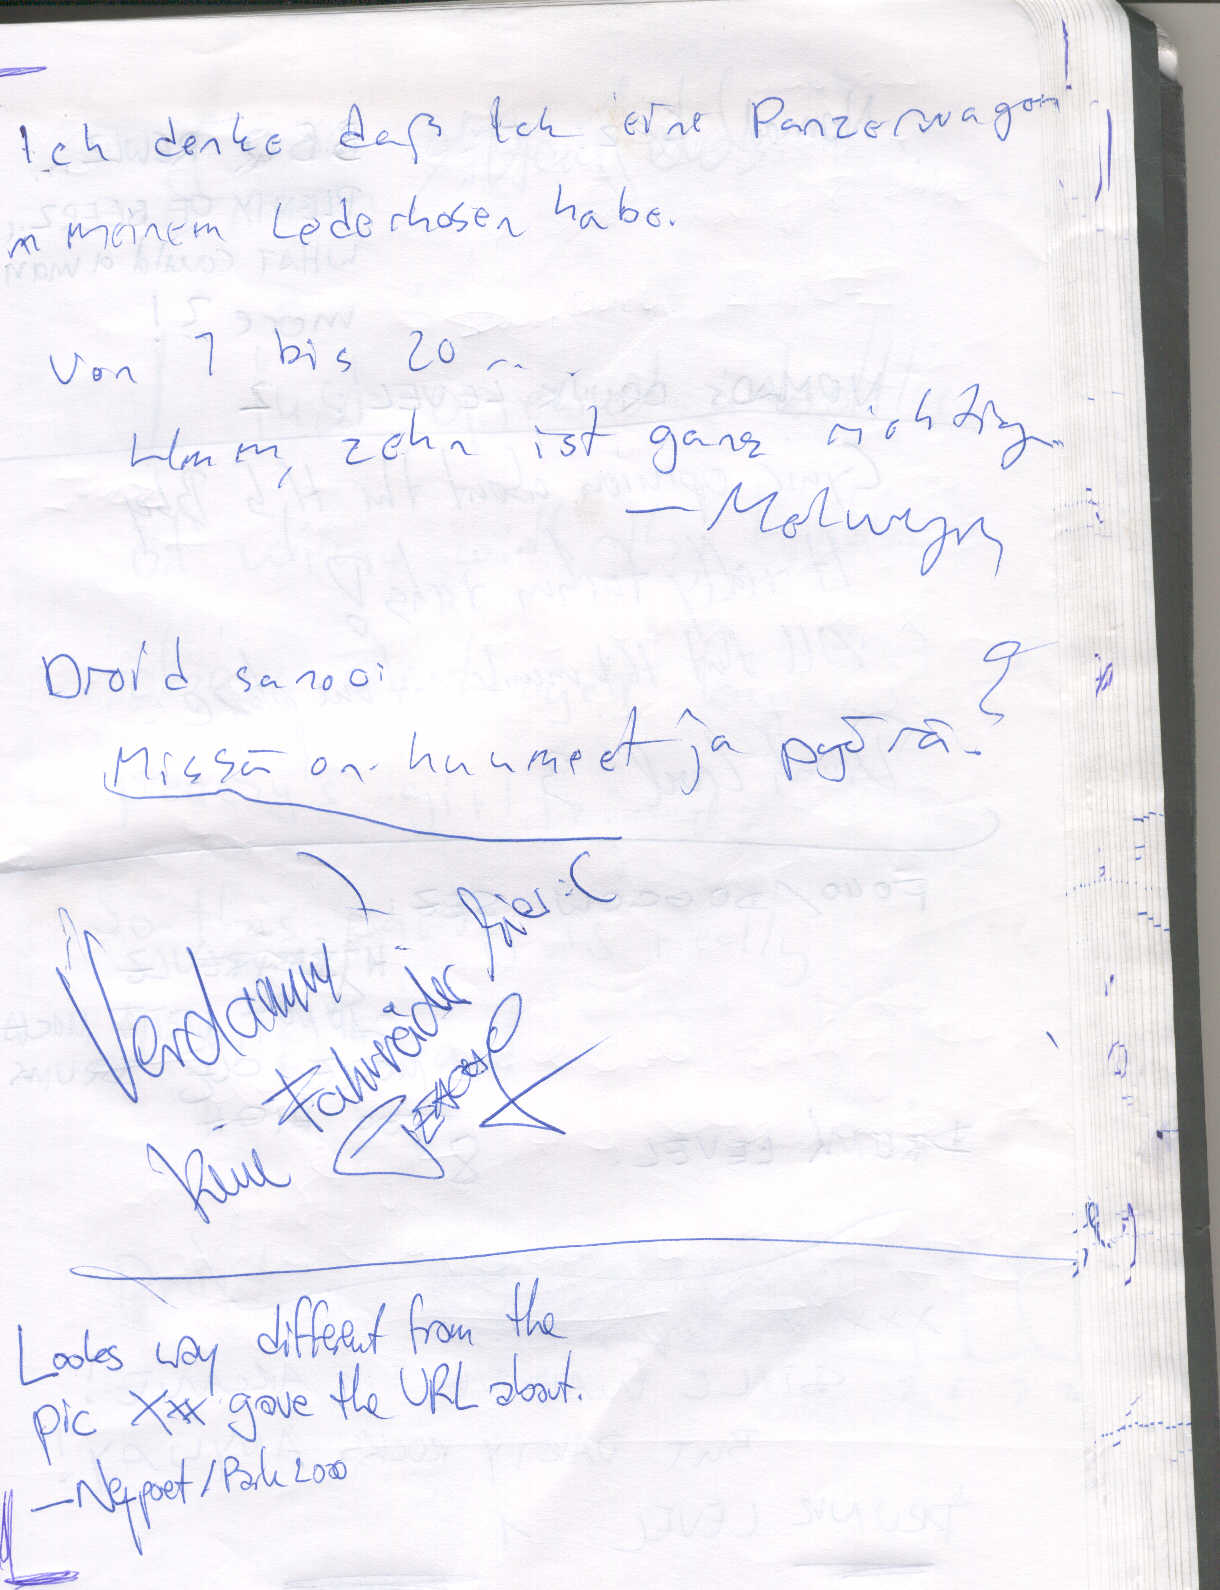 Ich denke daß Ich eine Panzerwagon
in meinem Lederhosen habe.
Von 1 bis 20 ...
Hmm, zehn ist ganz richtig.
— Melwyn
Droid sanooi
Missä on huumeet ja pyörä?
Verdammt
keine Fahrräder hier :(
Looks way different from the
pic X gave the URL about.
— Neppoet / Park 2000